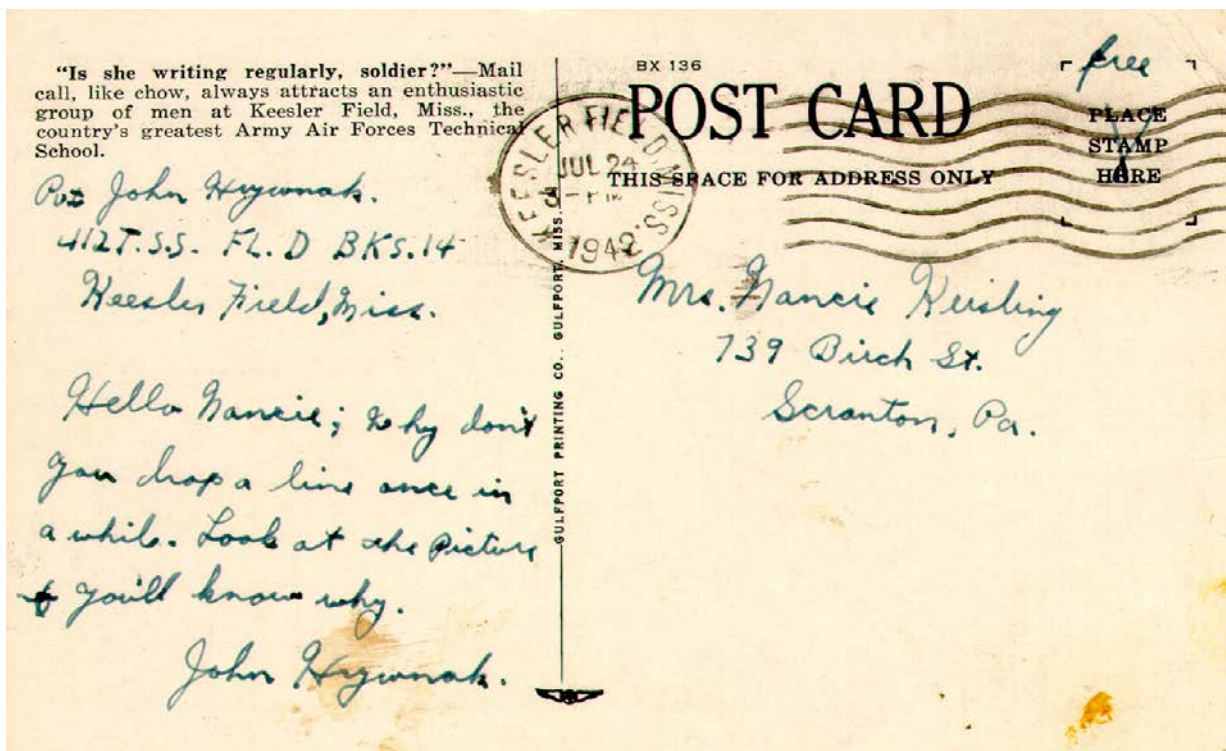 "Is she writing regularly, soldier?"—Mail
call, like chow, always attracts an enthusiastic
group of men at Keesler Field, Miss., the
country's greatest Army Air Forces Technical
School.
Pvt John Hrywnak.
412 T.S.S. FL. D BKS. 14
Keesler Field, Miss.
Hello Nancie; Why don't
you drop a line once in
a while. Look at the Picture
& you'll know why.
John Hrywnak.
GULFPORT PRINTING CO., GULFPORT, MISS.
BX 136
POST CARD
THIS SPACE FOR ADDRESS ONLY
KEESLER FIELD, MISS.
JUL 24
1942
free
PLACE
STAMP
HERE
Mrs. Nancie Keisling
739 Birch St.
Scranton, Pa.